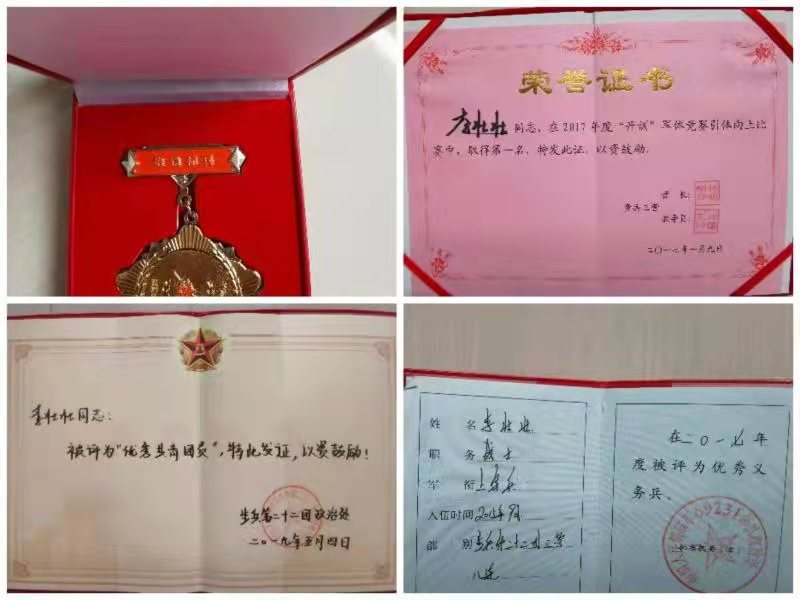 荣誉证书
李壮壮同志，在2017年度“开训”军体竞赛引体向上比
赛中，取得第一名，特发此证，以资鼓励。
营长：
步兵三营
教导员：
二〇一七年一月九日
李壮壮同志：
被评为“优秀共青团员”，特此发证，以资鼓励！
步兵第二十二团政治处
二〇一九年五月四日
姓名 李壮壮
职务 战士
军衔 上等兵
入伍时间
部别 步兵第二十二团三营
八连
在二〇一七年
度被评为优秀义
务兵。
69231